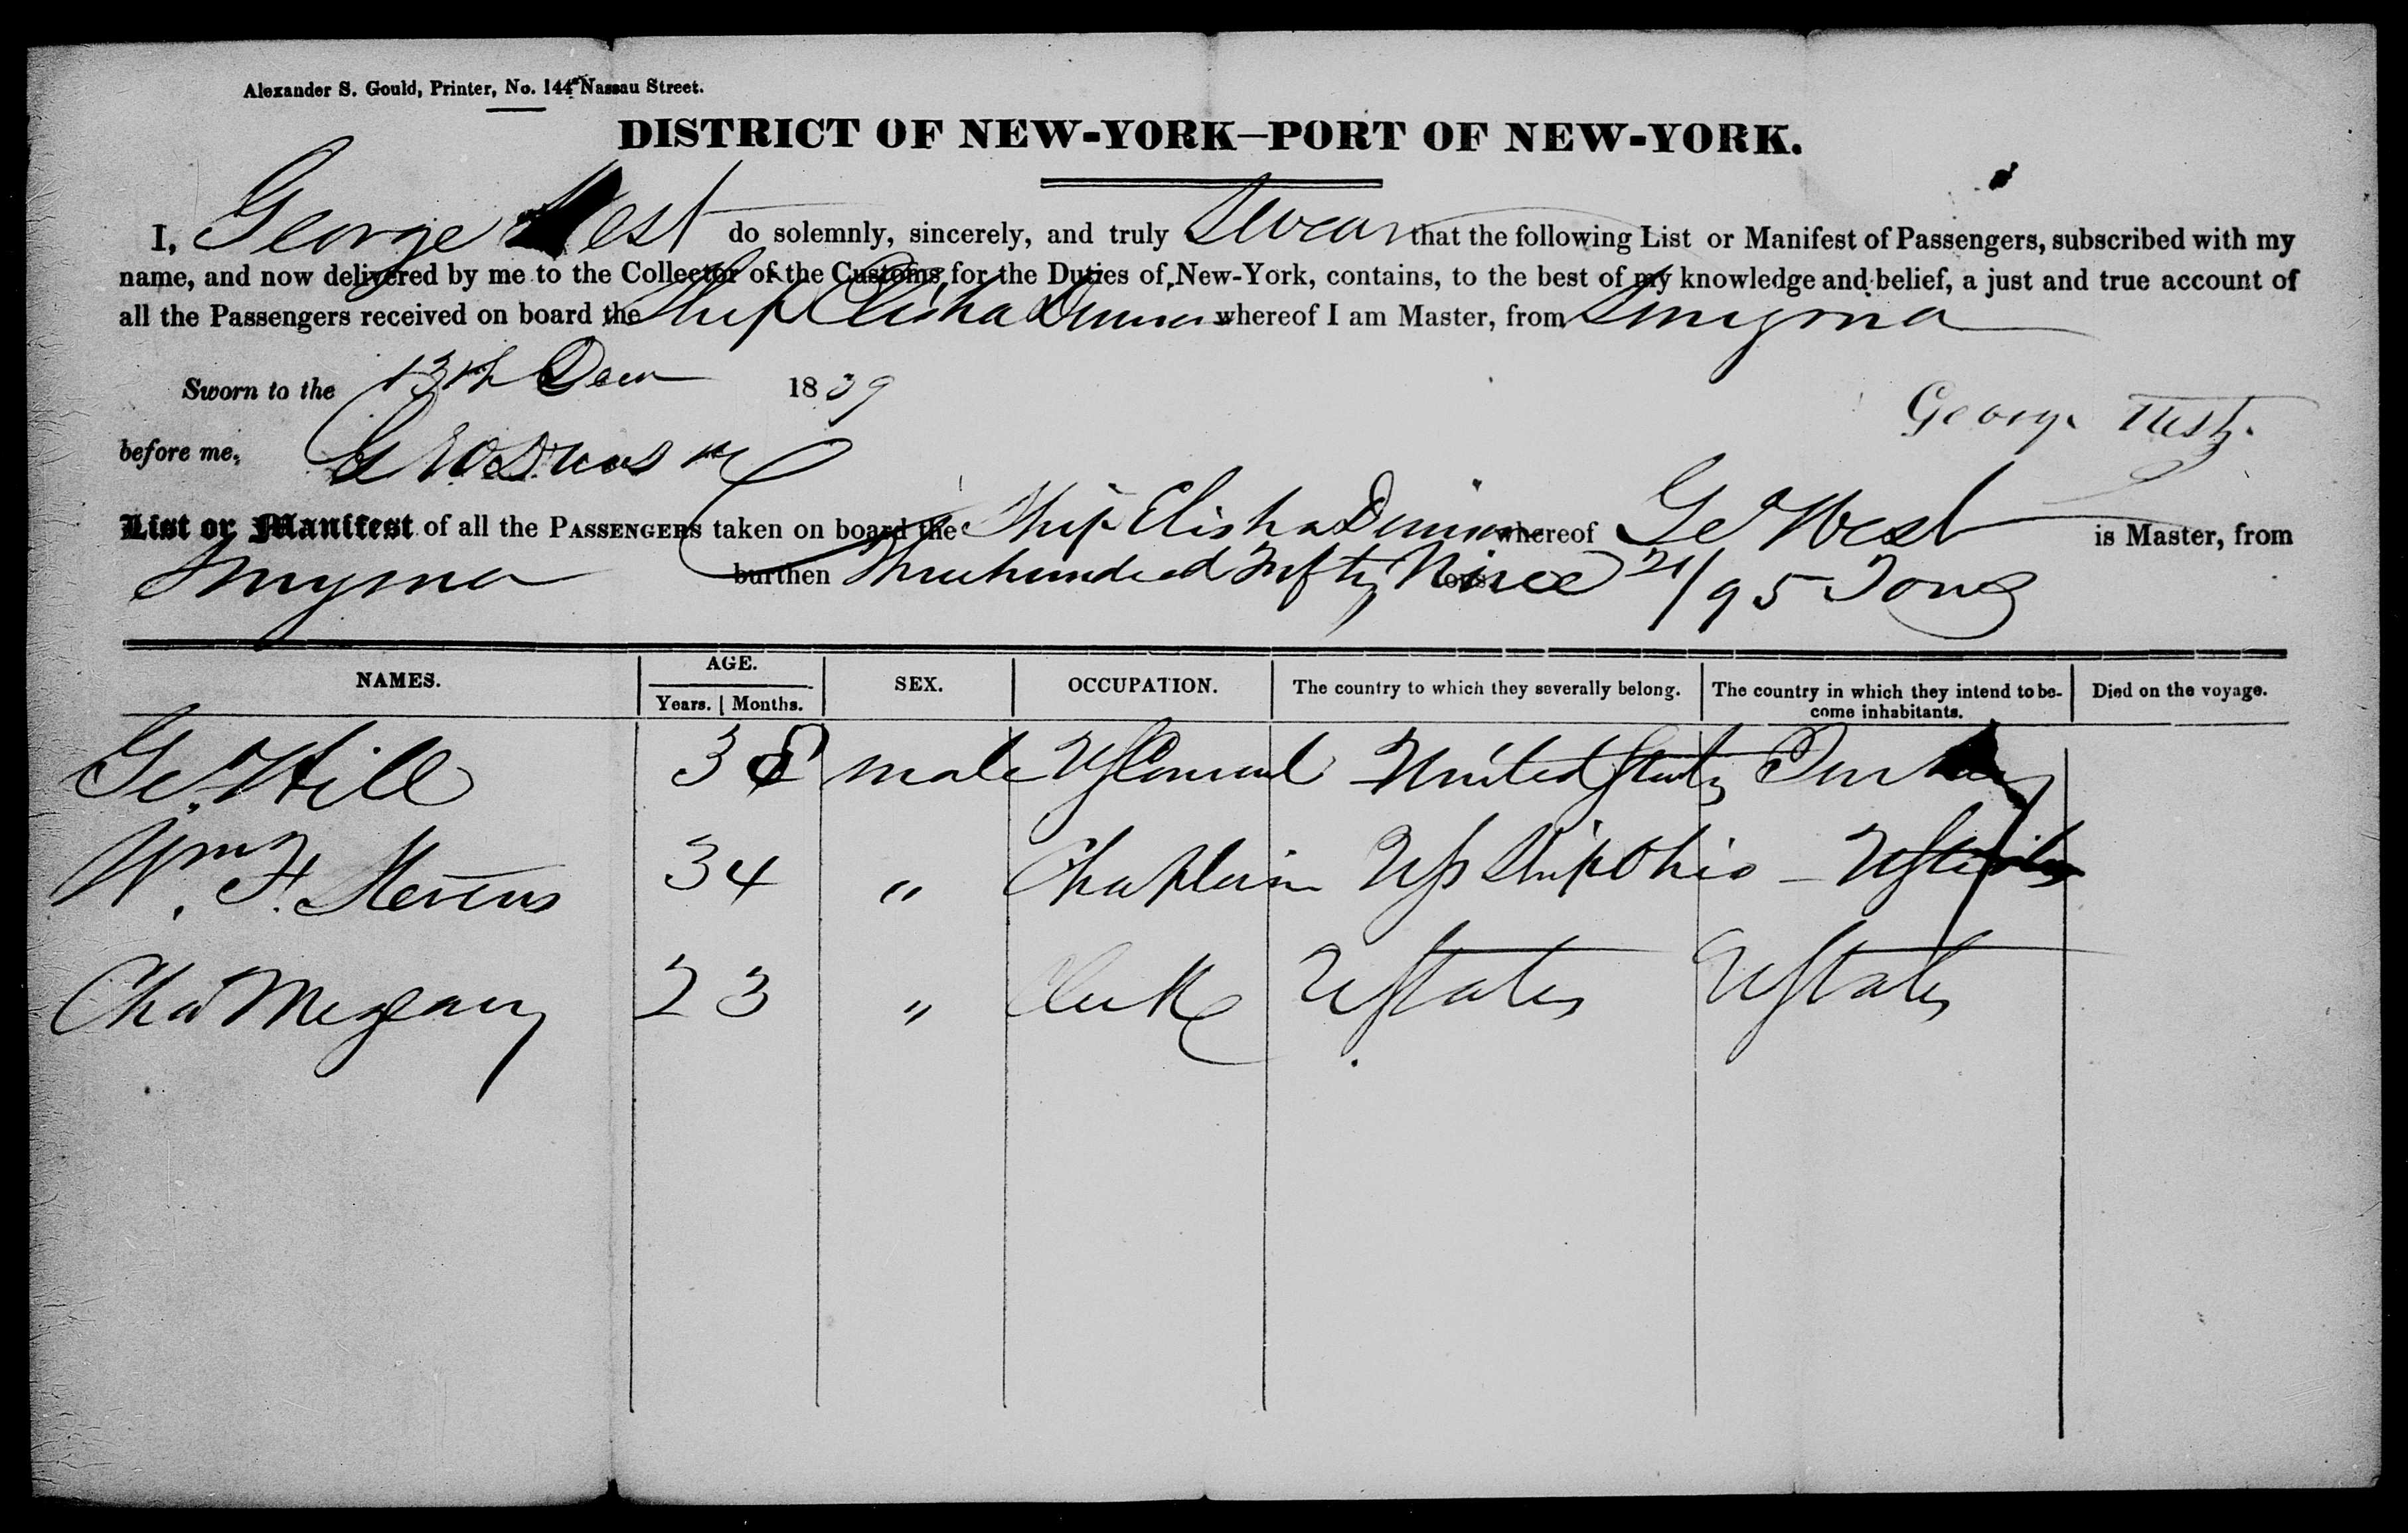 Alexander S. Gould, Printer, No. 144 Nassau Street.
DISTRICT OF NEW-YORK—PORT OF NEW-YORK.
I, George West do solemnly, sincerely, and truly Swear that the following List or Manifest of Passengers, subscribed with my
name, and now delivered by me to the Collector of the Customs, for the Duties of New-York, contains, to the best of my knowledge and belief, a just and true account of
all the Passengers received on board the Ship Elisha Denison whereof I am Master, from Smyrna
Sworn to the 13th Decr 1839
George West.
before me,
List or Manifest of all the PASSENGERS taken on board the Ship Elisha Denison whereof Geo West is Master, from
Smyrna burthen Three hundred Fifty Nine 21/95 Tons
NAMES. AGE. Years. Months. SEX. OCCUPATION. The country to which they severally belong. The country in which they intend to become inhabitants. Died on the voyage.
Geo. Hill 38 male US Consul United States Turkey
Wm. F. Stevens 34 " Chaplain US Ship Ohio — UStates
Chas 23 " Clerk UStates UStates